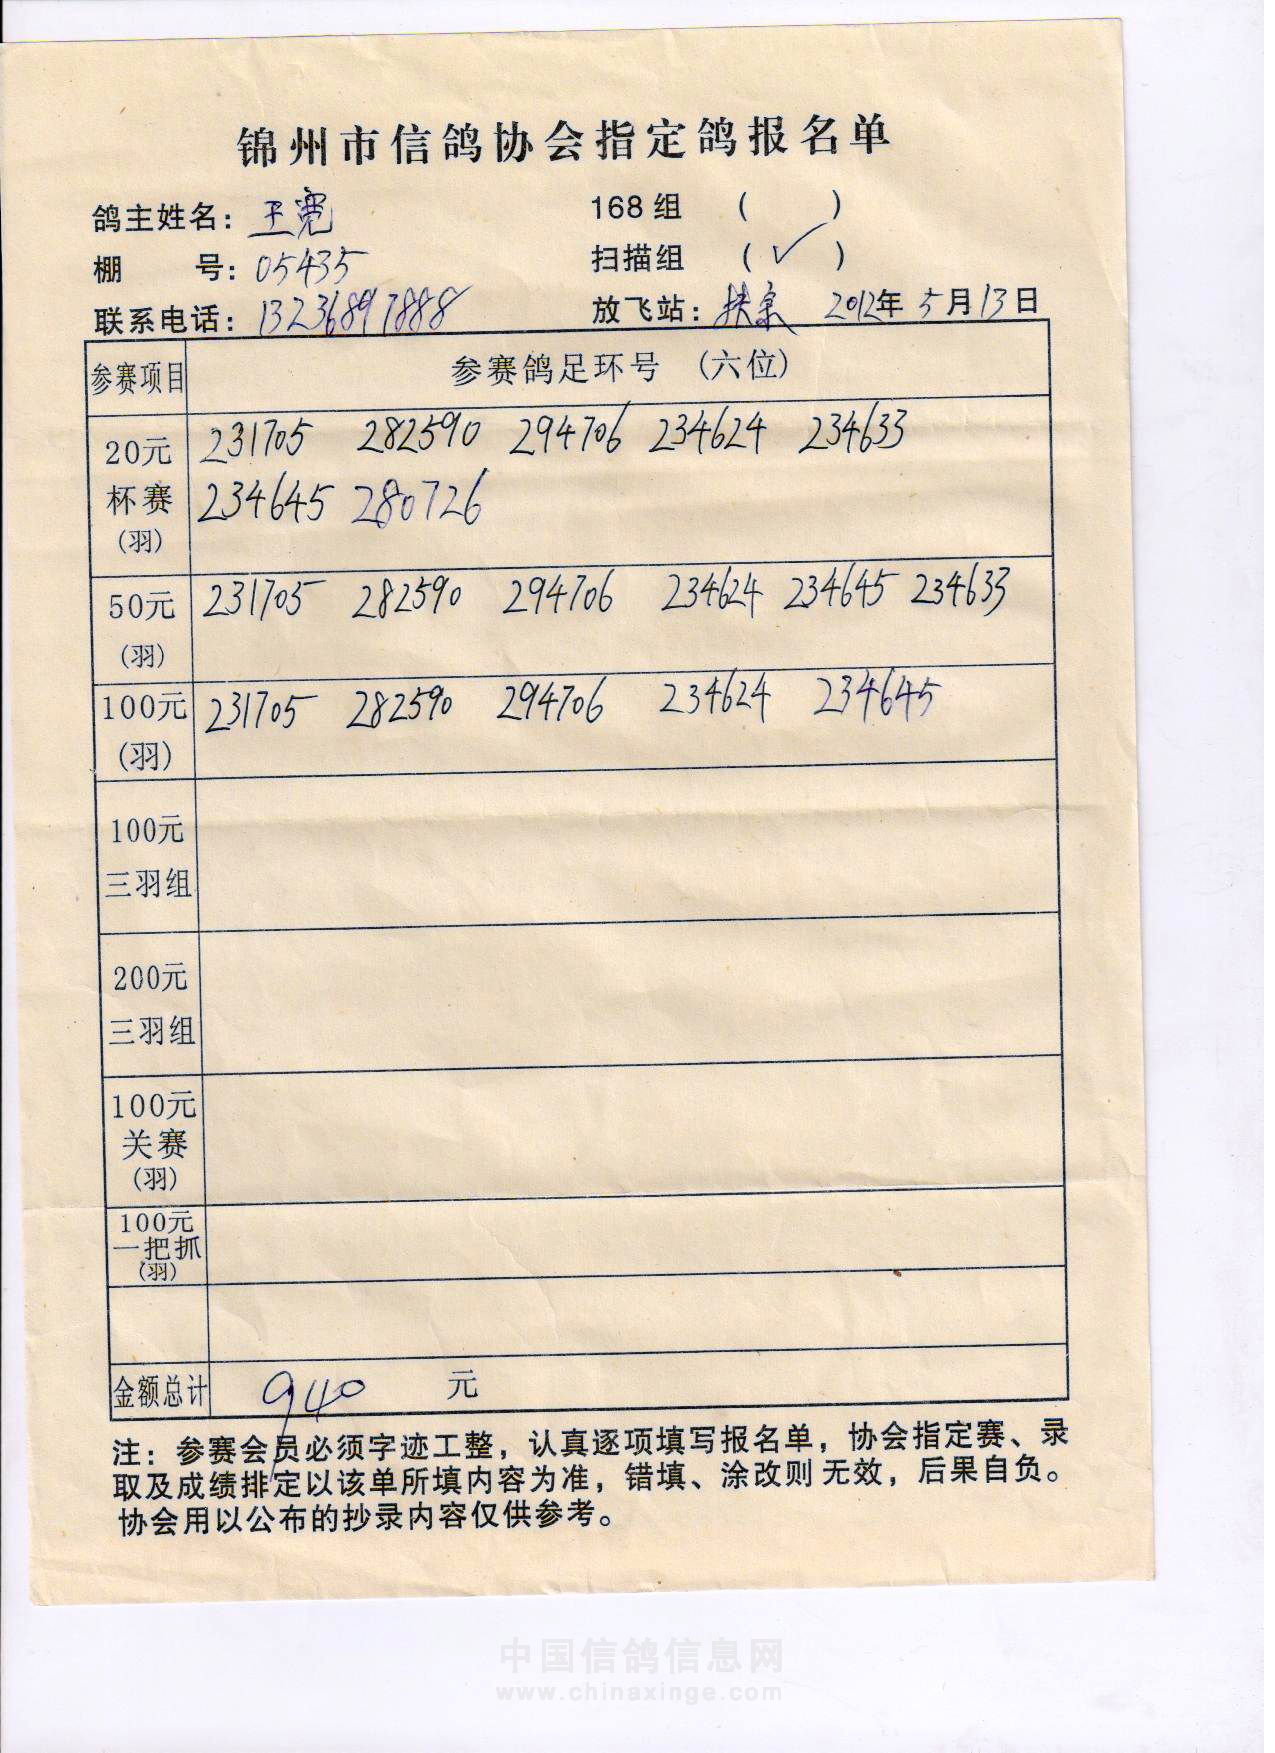 锦州市信鸽协会指定鸽报名单
鸽主姓名：王宽 168组 （ ）
棚 号：05435 扫描组 （✓）
联系电话：13236897888 放飞站：扶余 2012年5月13日
参赛项目 参赛鸽足环号 （六位）
20元 231705 282590 294706 234624 234633
杯赛 234645 280726
(羽)
50元 231705 282590 294706 234624 234645 234633
(羽)
100元 231705 282590 294706 234624 234645
(羽)
100元
三羽组
200元
三羽组
100元
关赛
(羽)
100元
一把抓
(羽)
金额总计 940 元
注：参赛会员必须字迹工整，认真逐项填写报名单，协会指定赛、录
取及成绩排定以该单所填内容为准，错填、涂改则无效，后果自负。
协会用以公布的抄录内容仅供参考。
中国信鸽信息网
www.chinaxinge.com